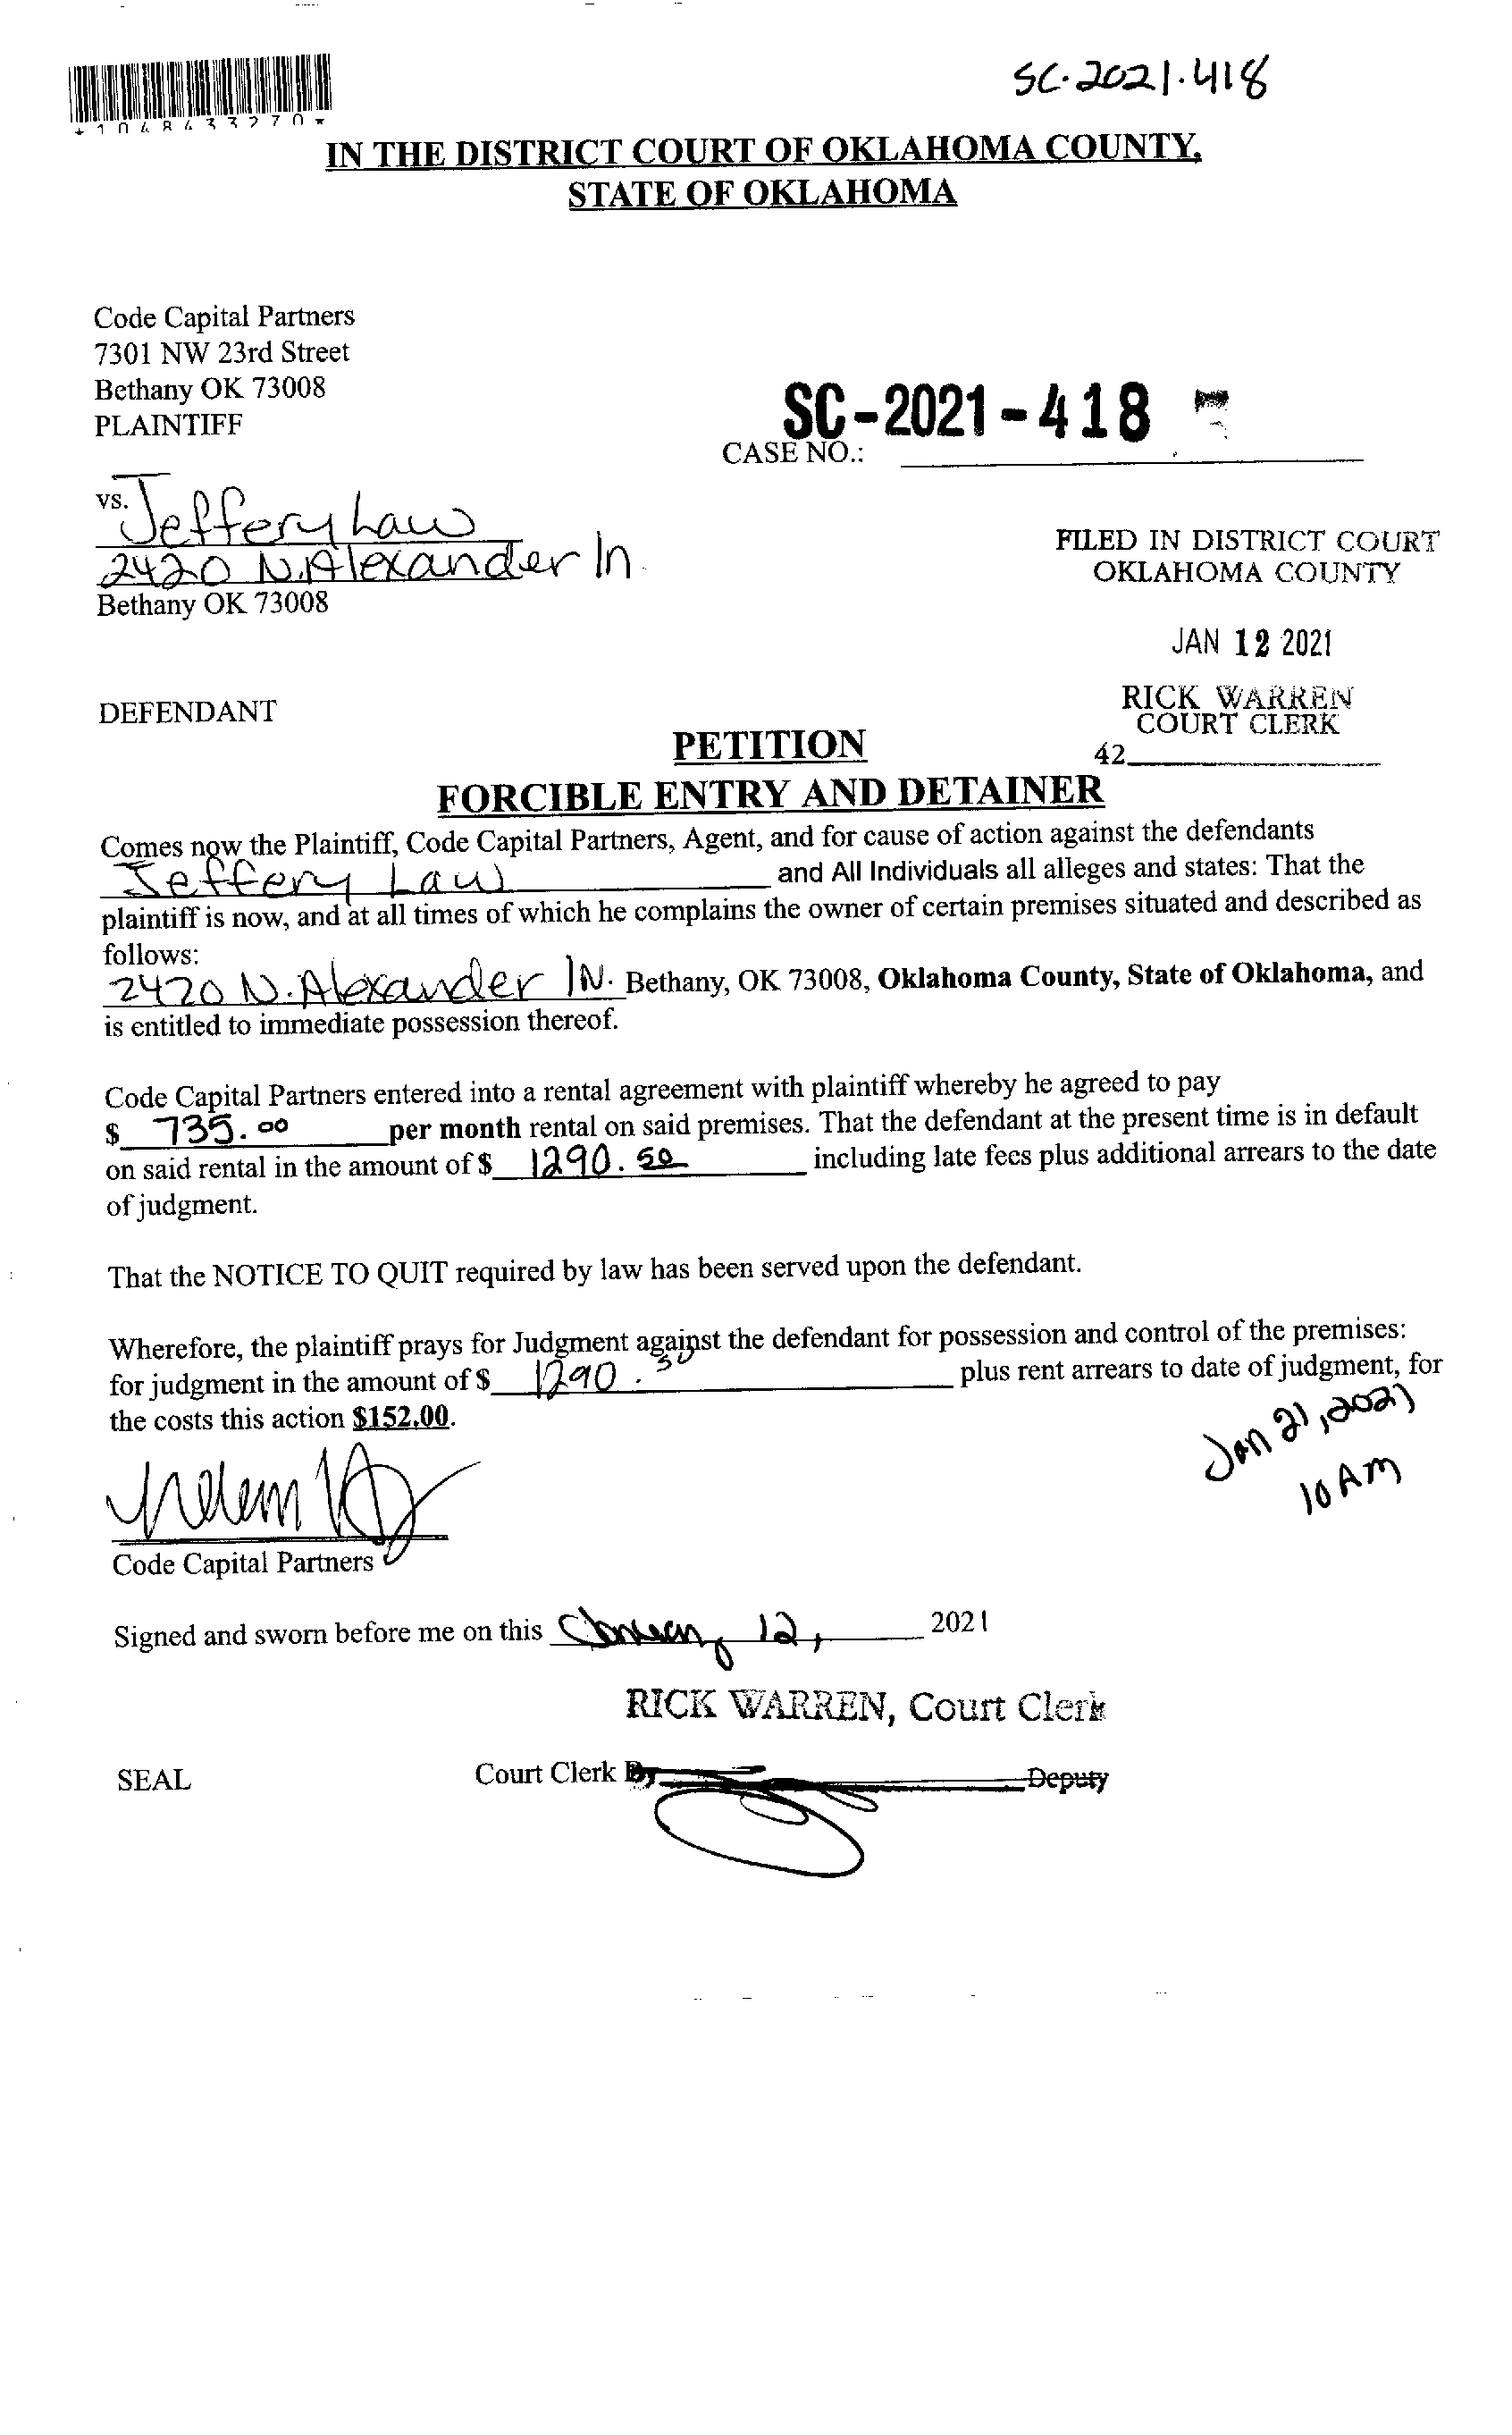 SC-2021-418
*1048433270*
IN THE DISTRICT COURT OF OKLAHOMA COUNTY,
STATE OF OKLAHOMA
Code Capital Partners
7301 NW 23rd Street
Bethany OK 73008
PLAINTIFF
SC-2021-418
CASE NO.:
vs. Jeffery Law
2420 N. Alexander ln.
Bethany OK 73008
FILED IN DISTRICT COURT
OKLAHOMA COUNTY
JAN 12 2021
RICK WARREN
COURT CLERK
42
DEFENDANT
PETITION
FORCIBLE ENTRY AND DETAINER
Comes now the Plaintiff, Code Capital Partners, Agent, and for cause of action against the defendants
Jeffery Law and All Individuals all alleges and states: That the
plaintiff is now, and at all times of which he complains the owner of certain premises situated and described as
follows:
2420 N. Alexander lN. Bethany, OK 73008, Oklahoma County, State of Oklahoma, and
is entitled to immediate possession thereof.
Code Capital Partners entered into a rental agreement with plaintiff whereby he agreed to pay
$ 735.00 per month rental on said premises. That the defendant at the present time is in default
on said rental in the amount of $ 1290.50 including late fees plus additional arrears to the date
of judgment.
That the NOTICE TO QUIT required by law has been served upon the defendant.
Wherefore, the plaintiff prays for Judgment against the defendant for possession and control of the premises:
for judgment in the amount of $ 1290.50 plus rent arrears to date of judgment, for
the costs this action $152.00.
Jan 21, 2021
10 AM
Code Capital Partners
Signed and sworn before me on this January 12, 2021
RICK WARREN, Court Clerk
SEAL
Court Clerk By Deputy